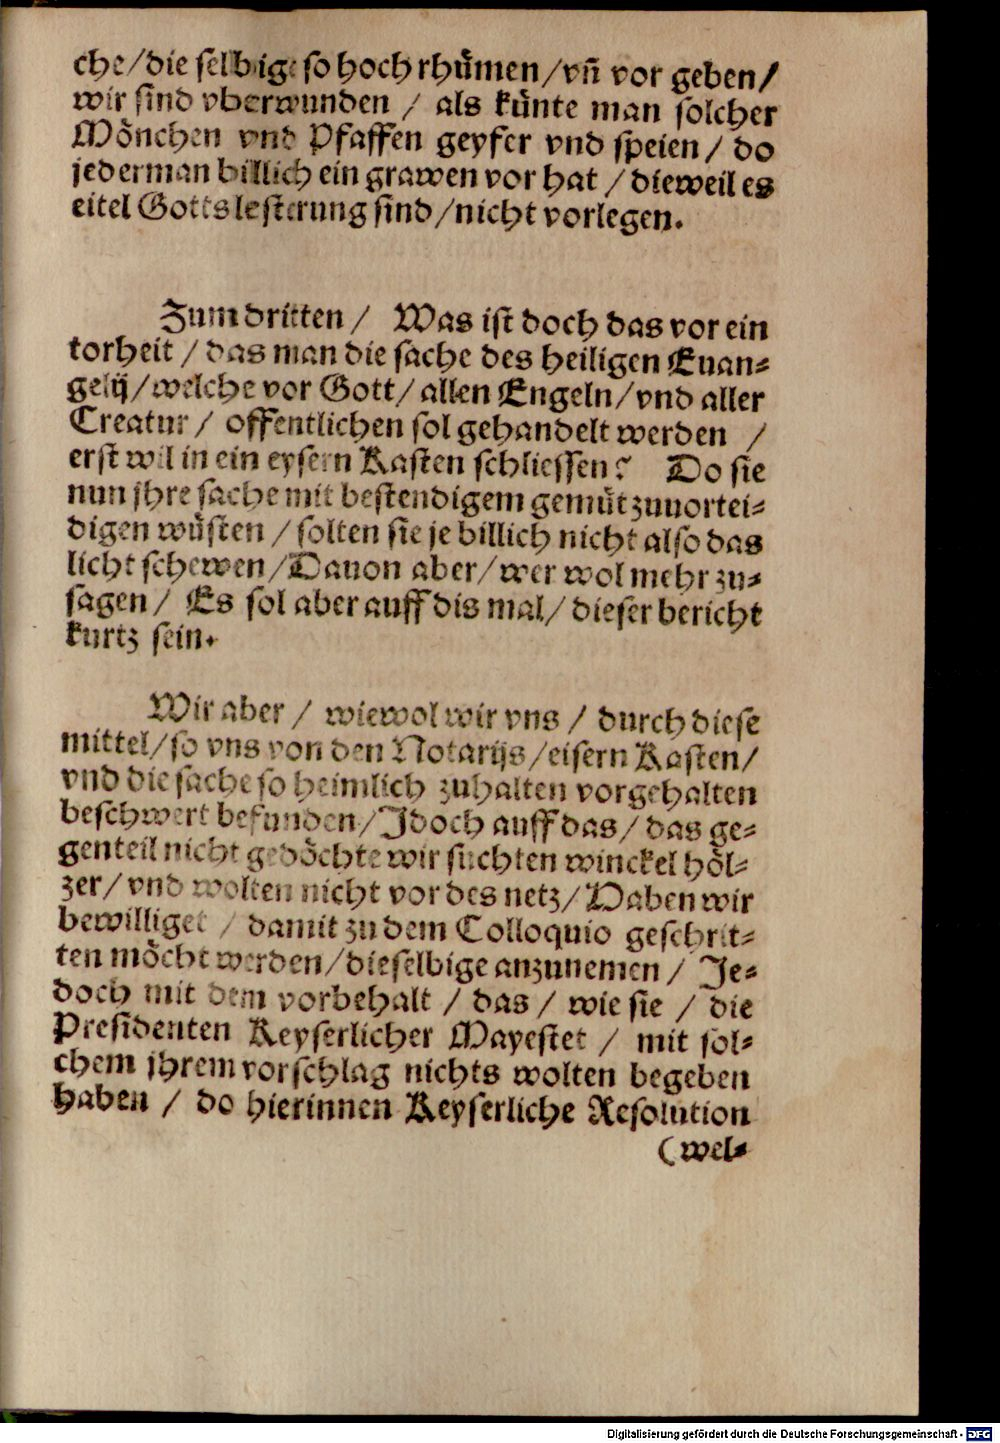 che/die selbige so hoch rhůmen/vñ vor geben/
wir sind vberwunden / als kůnte man solcher
Mo̊nchen vnd Pfaffen geyfer vnd speien / do
jederman billich ein grawen vor hat / dieweil es
eitel Gottslesterung sind/nicht vorlegen.
Zum dritten / Was ist doch das vor ein
torheit / das man die sache des heiligen Euan⸗
gelij/welche vor Gott/allen Engeln/vnd aller
Creatur / offentlichen sol gehandelt werden /
erst wil in ein eysern Kasten schliessen? Do sie
nun jhre sache mit bestendigem gemůt zuuortei⸗
digen wůsten / solten sie je billich nicht also das
licht schewen/Dauon aber/wer wol mehr zu⸗
sagen / Es sol aber auff dis mal/ dieser bericht
kurtz sein.
Wir aber / wiewol wir vns / durch diese
mittel/so vns von den Notarijs/eisern Kasten/
vnd die sache so heimlich zuhalten vorgehalten
beschwert befunden/Jdoch auff das/ das ge⸗
genteil nicht gedo̊chte wir suchten winckel ho̊l⸗
zer/vnd wolten nicht vor des netz/Haben wir
bewilliget / damit zu dem Colloquio geschrit⸗
ten mo̊cht werden/dieselbige anzunemen / Je⸗
doch mit dem vorbehalt / das / wie sie / die
Presidenten Keyserlicher Mayestet / mit sol⸗
chem jhrem vorschlag nichts wolten begeben
haben / do hierinnen Keyserliche Resolution
(wel⸗
Digitalisierung gefördert durch die Deutsche Forschungsgemeinschaft - DFG